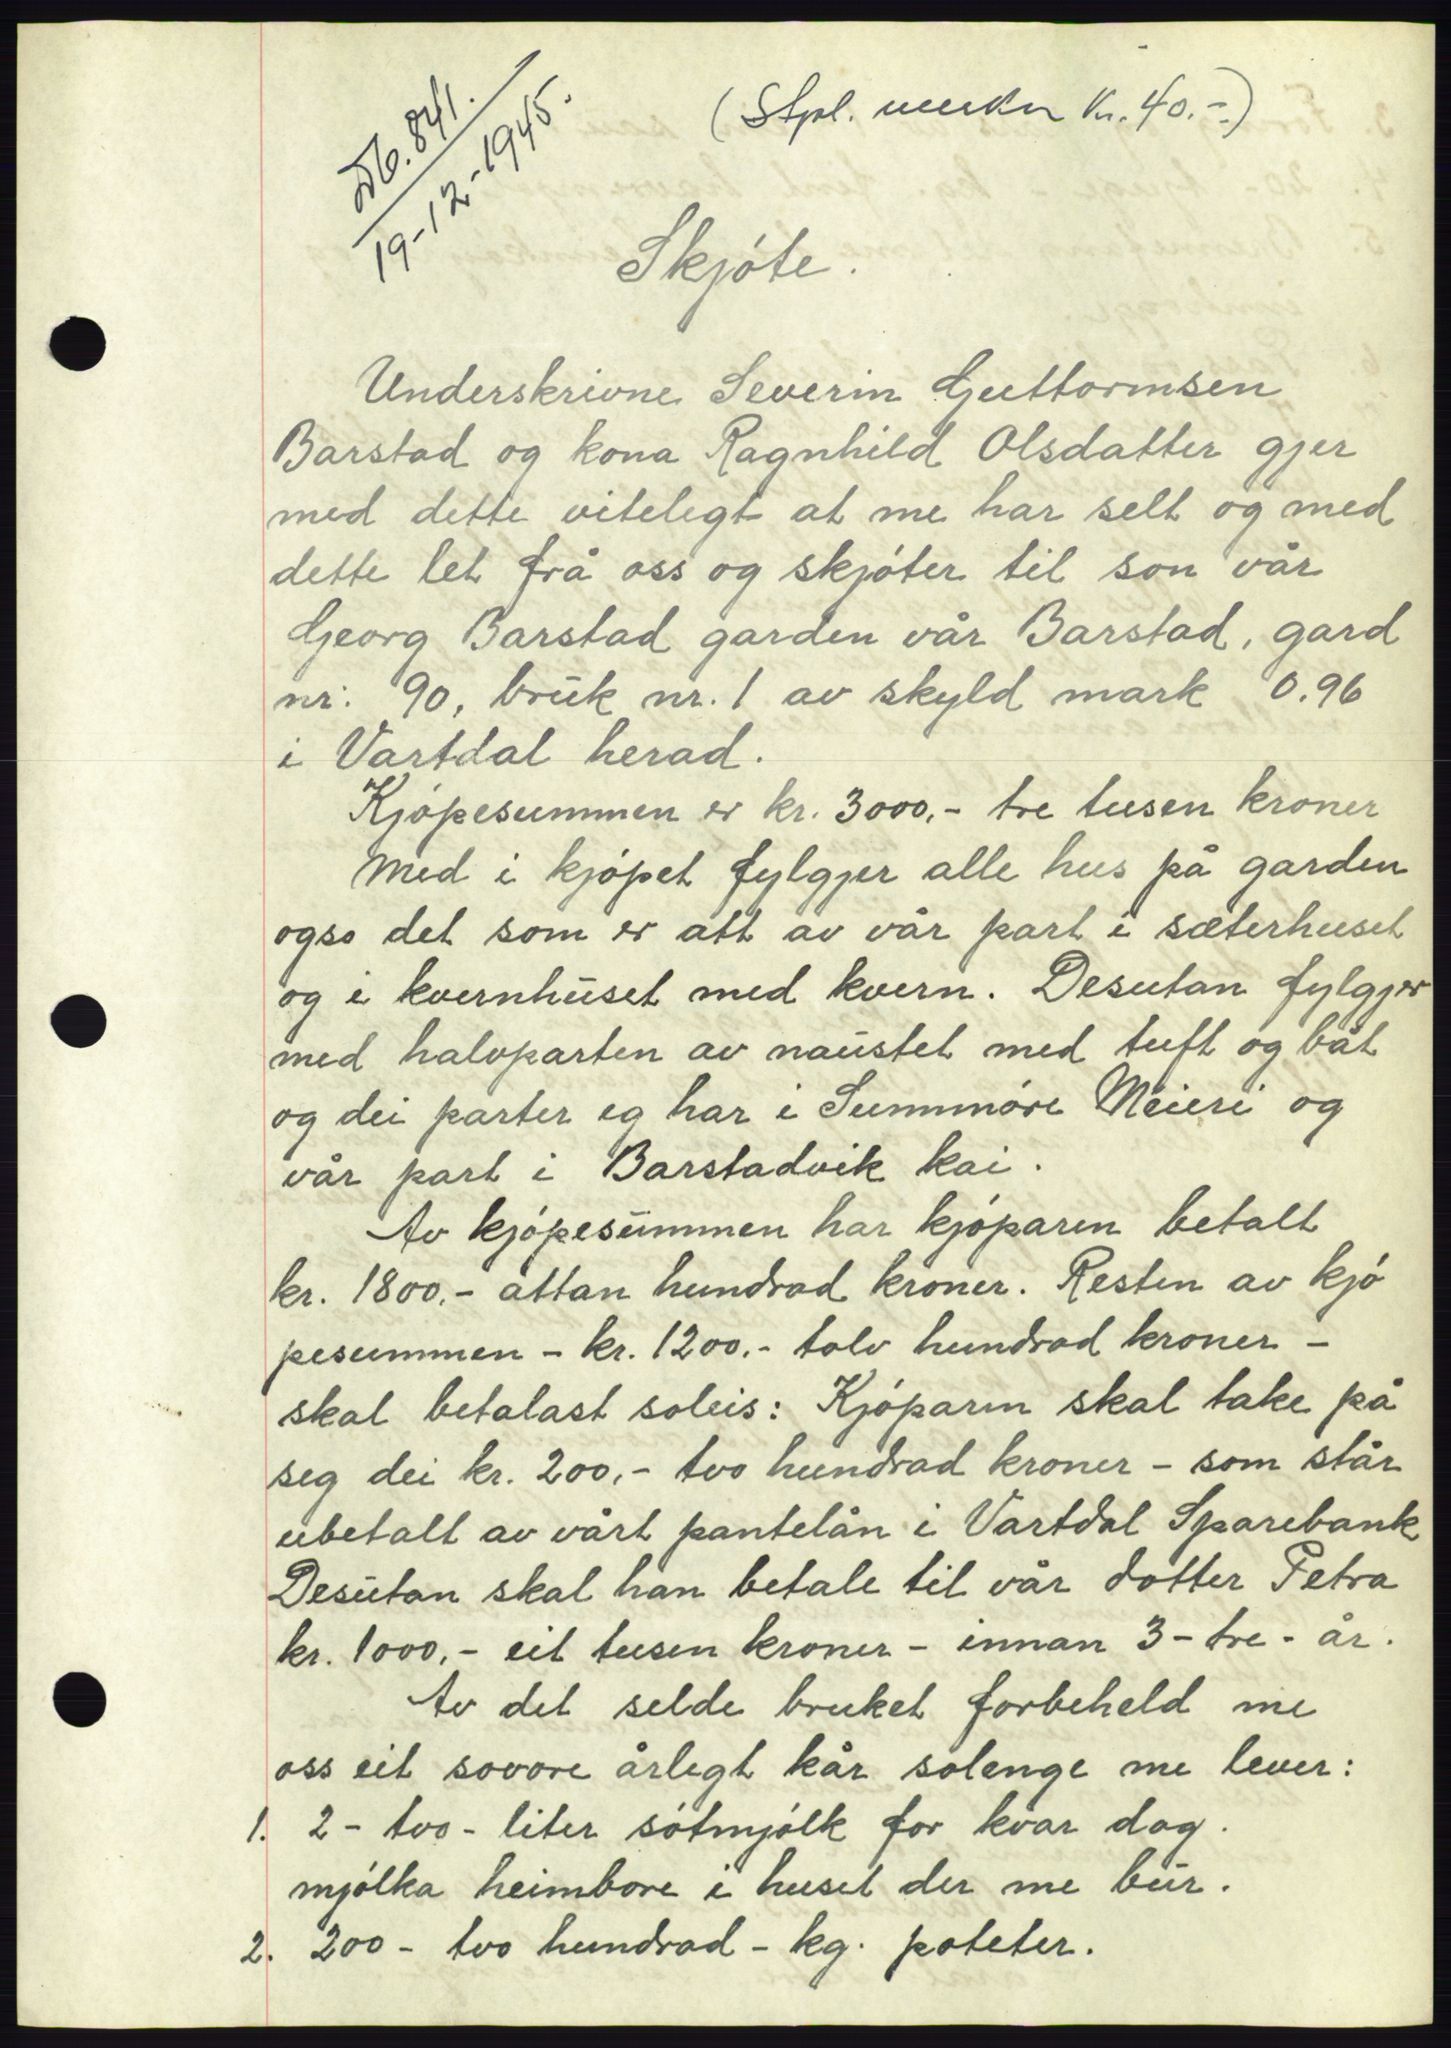 Db. 841.
19-12-1945.
(Stpl. merker Kr. 40.-)
Skjóte.
Underskrivne Severin Guttormsen
Barstad og kona Ragnhild Olsdatter gjer
med dette vitelegt at me har selt og med
dette let frå oss og skjóter til son vår
Georg Barstad garden vår Barstad, gard
nr. 90, bruk nr. 1 av skyld mark 0.96
i Vartdal herad.
Kjópesummen er kr. 3000.- tre tusen kroner
Med i kjópet fylgjer alle hus på garden
ogso det som er att av vår part i sæterhuset
og i kvernhuset med kvern. Desutan fylgjer
med halvparten av naustet med tuft og båt
og dei parter eg har i Sunnmóre Meieri og
vår part i Barstadvik kai.
Av kjópesummen har kjóparen betalt
kr. 1800.- attan hundrad kroner. Resten av kjó
pesummen - kr. 1200.- tolv hundrad kroner -
skal betalast soleis: Kjóparen skal take på
seg dei kr. 200.- tvo hundrad kroner - som står
ubetalt av vårt pantelån i Vartdal Sparebank
Desutan skal han betale til vår dotter Petra
kr. 1000.- eit tusen kroner - innan 3 - tre - år.
Av det selde bruket forbeheld me
oss eit sovore årlegt kår solenge me lever:
1. 2 - tvo - liter sótmjólk for kvar dag.
mjólka heimbore i huset der me bur.
2. 200 - tvo hundrad - kg. poteter.